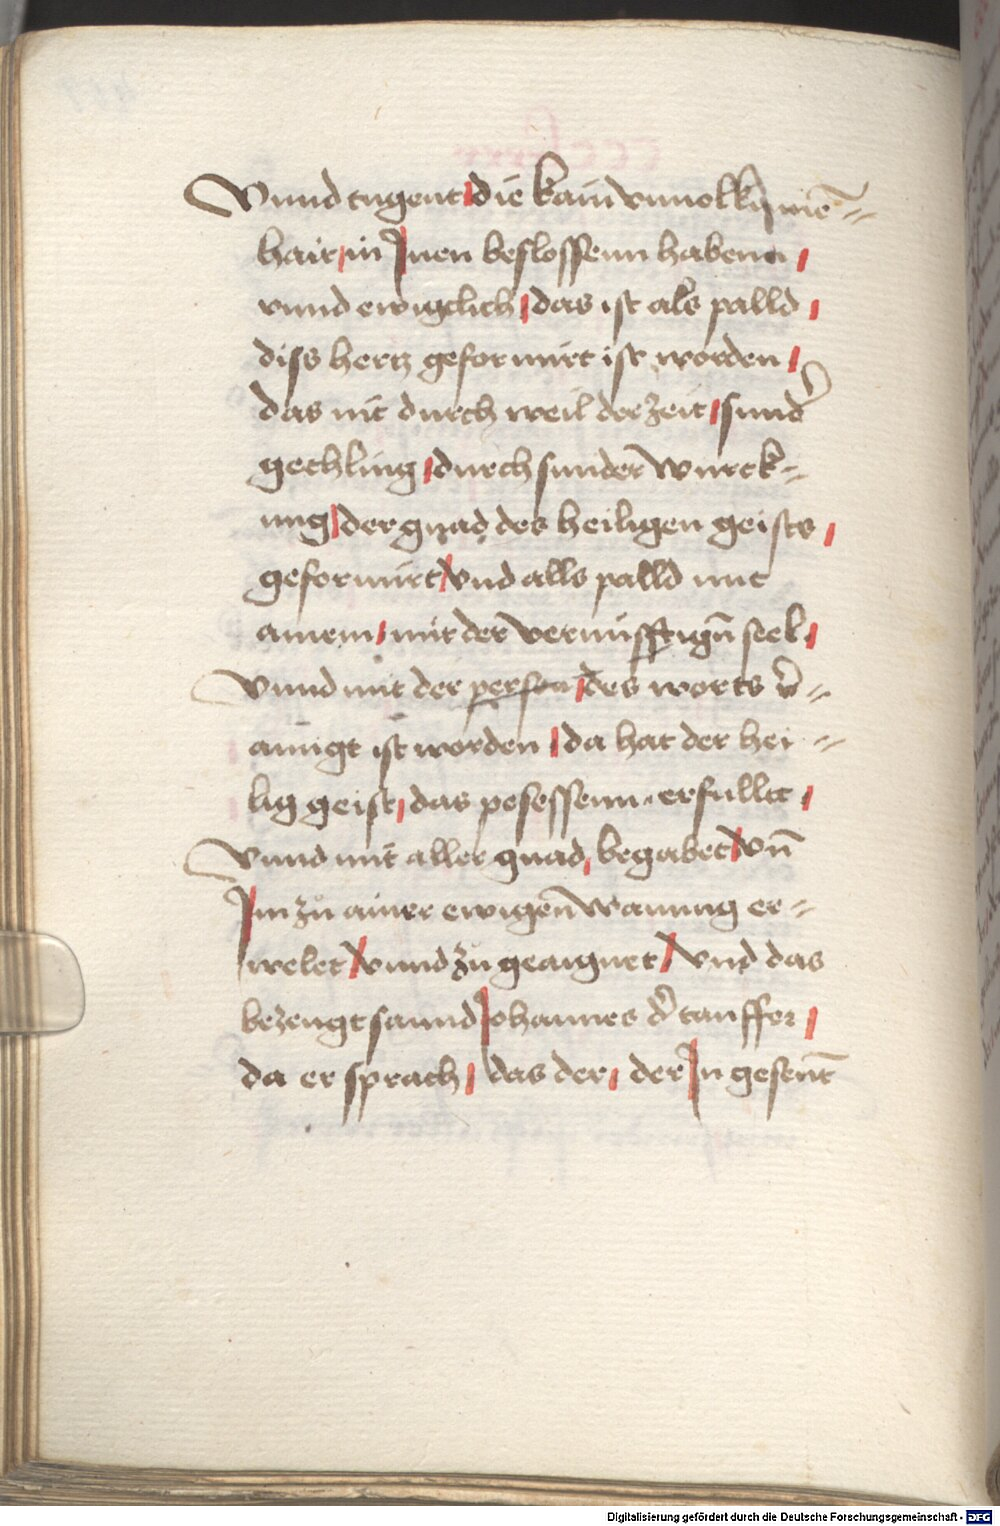 Vnnd tugent die kain vnuolkumē=
hait in Jnen beslossenn habenn
vnnd ewigclich das ist als palld
diss hertz geformirt ist worden
das nit durch weil der zeit sund͛
gechling durch sunder wurck=
ung der gnad des heiligen geists
geformirt vnd alls palld mit
ainem mit der vernufftigñ seel
Vnnd mit der person des worts v͛=
ainigt ist worden da hat der hei=
lig geist das posessenn erfulltt
Vnnd mit aller gnad begabet vñ
Jm zů ainer ewigen wanung er=
welet vnnd zů geaignet vnd das
bezeugt sannd Johannes d͛ tauffer
da er sprach das der der Jn gesent
Digitalisierung gefördert durch die Deutsche Forschungsgemeinschaft - DFG